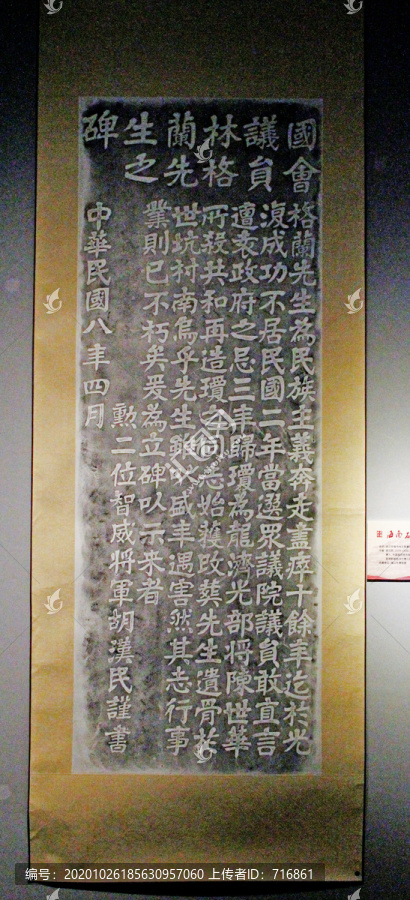 國會
議員
林格
蘭先
生之
碑
格蘭先生為民族主義奔走盡瘁十餘年迄於光
復成功不居民國二年當選眾議院議員敢直言
遭袁政府之忌三年歸瓊為龍濟光部將陳世華
所殺共和再造瓊同志始獲改葬先生遺骨於
世坑村南烏乎先生雖以盛年遇害然其志行事
業則已不朽矣爰為立碑以示來者
勳二位智威將軍胡漢民謹書
中華民國八年四月
海南
编号：20201026185630957060 上传者ID：716861